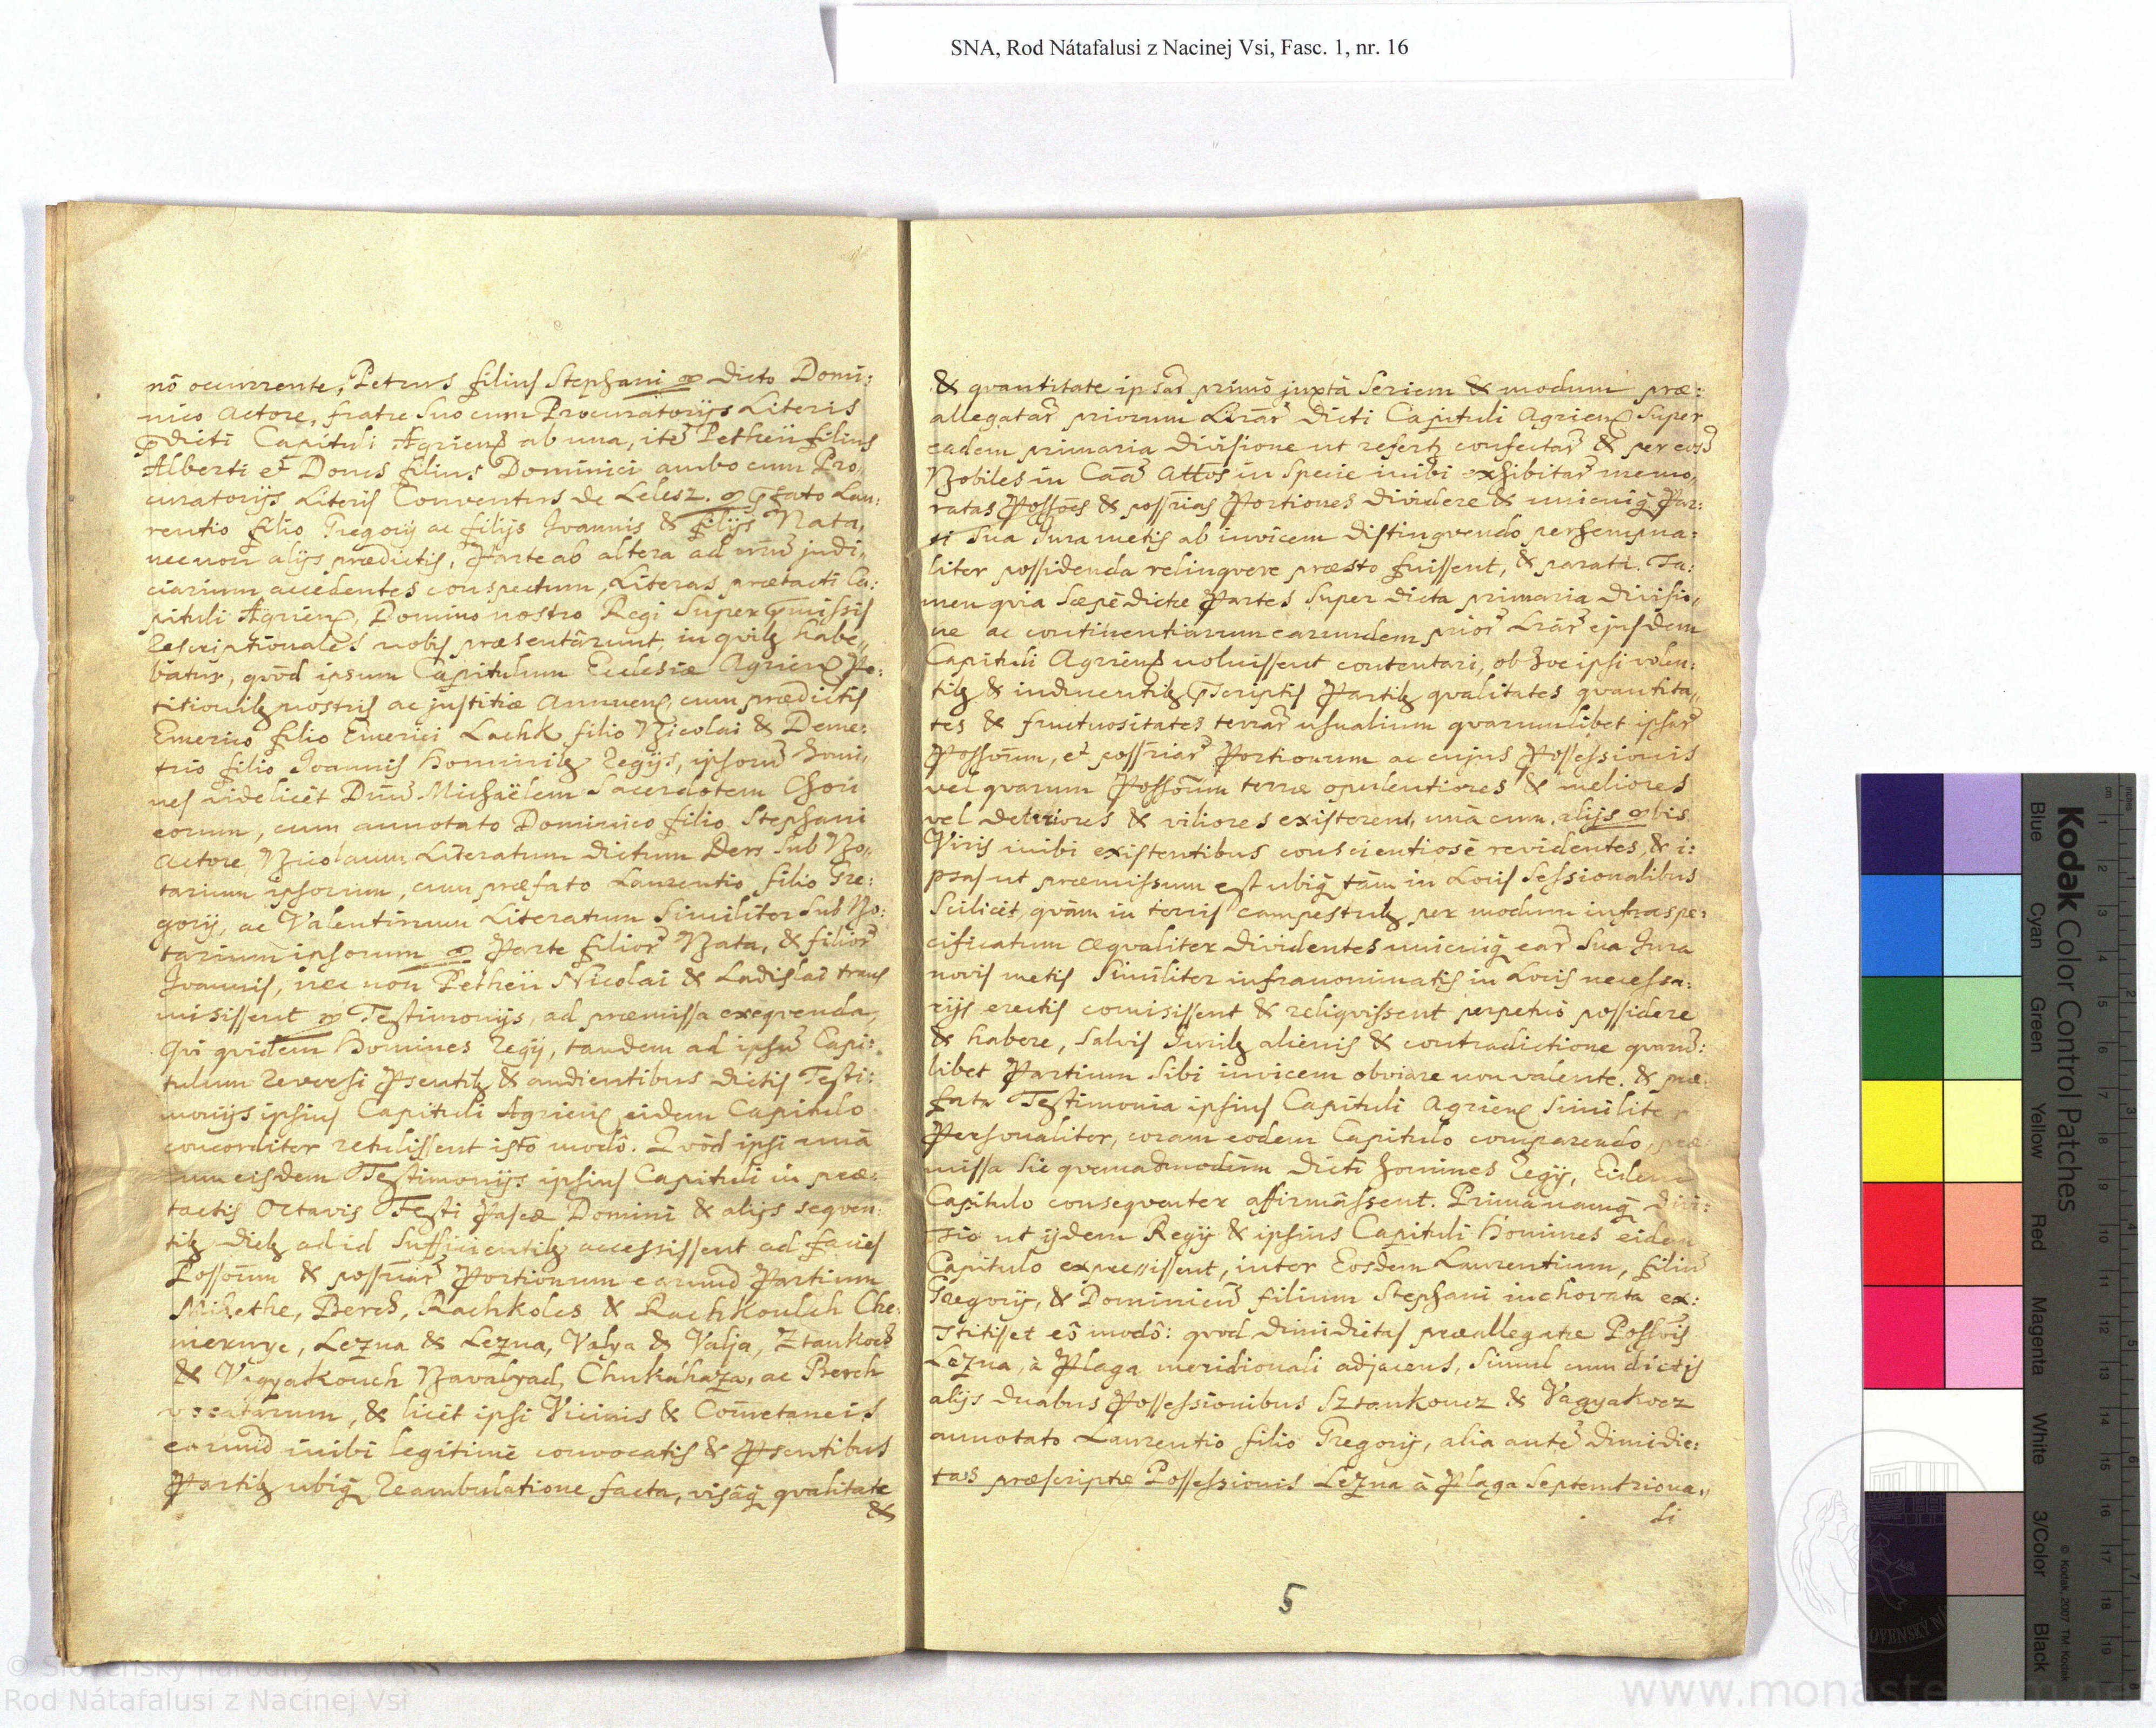 SNA, Rod Nátafalusi z Nacinej Vsi, Fasc. 1, nr. 16
nō occurrente, Petrus filius Stephani dicto Domi:
nico Actore, fratre suo cum Procuratorÿs Literis
dicti Capituli Agrien ab una, itē Petheii filius
Alberti et Doncs filius Dominici ambo cum Pro,,
curatorÿs Literis Conventus de Lelesz. fato Lau:
rentio filio Gregorÿ ac filÿs Joannis & filÿs Nata,
necnon alÿs prædictis, Parte ab altera ad judi,,
ciarium accedentes conspectum, Literas prætacti Ca:
pituli Agrien, Domino nostro Regi super missis
rescriptionales nobis præsentârunt, in quibz habe,,
bâtur, quòd ipsum Capitulum Ecclesiæ Agrien Pe:
titionibz nostris ac justitiæ annuens, cum prædictis
Emerico filio Emerici Lachk filio Nicolai & Deme:
trio filio Joannis Hominibz Regÿs, ipsorū homi,
nes videlicèt Dnū Michaëlem Sacerdotem Chori
eorum, cum annotato Dominico filio Stephani
Actore Nicolaum Literatum dictum Ders sub No,,
tarium ipsorum, cum præfato Laurentio filio Gre:
gorÿ, ac Valentinum Literatum similiter sub No:
tarium ipsorum Parte filior Nata, & filior
Joannis, nec non Petheii Nicolai & Ladislai trans
misissent Testimonÿs, ad præmissa exeqvenda,
Qvi qvidem Homines Regÿ, tandem ad ipsū Capi:
tulum reversi Psentibz & audientibus dictis Testi:
monÿs ipsius Capituli Agrien eidem Capitulo
concorditer retulissent isto modô. Qvòd ipsi unà
cum eisdem Testimonÿs ipsius Capituli in præ:
tactis Octavis Festi Pascæ Domini & alÿs seqven:
tibz diebz ad id sufficientibz accessissent ad facies
Possoūm & possriar Portionum earund Partium
Mikethe, Berch, Rachkolcs & Rachkoulch Che:
mernye, Lezna & Lezna, Valya & Valja, Ztankoch
& Vigyakouch Navalyad, Chukáháza, ac Berch
vocatarum, & licèt ipsi Vicinis & Cōmetaneis
earund inibi legitimè convocatis & Psentibus
Partibz ubiq̃ reambulatione facta, visâq̃ qvalitate
&
& qvantitate ipsar primò juxtà seriem & modum præ:
allegatar priorum Lrār dicti Capituli Agrien super
eadem primaria divisione ut refertz confectar & per eosd
Nobiles in Caā Attos in Specie inibi exhibitar memo,
ratas Possoēs & possrias Portiones dividere & unicuiq̃ Par:
ti sua Jura metis ab invicem distingvendo perhempna:
liter possidenda relinqvere præsto fuissent, & parati. Ta:
men qvia sæpèdictæ Partes super dicta primaria divisio,
ne ac continentiarum earundem prior Lrār ejusdem
Capituli Agrien noluissent contentari, ob hoc ipsi volen:
tibz & inducentibz scriptis Partibz qvalitates qvantita,,
tes & fructuositates terrar usualium qvarumlibet ipsar
Possoūm, et possriar Portionum ac cujus Possessionis
vel qvarum Possoūm terræ opulentiores & meliores
vel deteriores & viliores existerent, unà cum alÿs bis
Viris inibi existentibus conscientiosè revidentes, & i:
psas ut præmissum est ubiq̃ tàm in Locis Sessionalibus
scilicèt, qvàm in terris campestribz per modum infraspe:
cificatum æqvaliter dividentes unicuiq̃ ear sua Jura
novis metis similiter infranominatis in Locis necessa:
rÿs erectis comisissent & reliqvissent perpetuò possidere
& habere, salvis Juribz alienis & contradictione qvarū:
libet Partium sibi invicem obviare non valente. & præ:
fata Testimonia ipsius Capituli Agrien similiter
Personaliter, coram eodem Capitulo comparendo, præ:
missa sic qvemadmodùm dicti homines Regÿ, Eidem
Capitulo conseqventer affirmâssent. Primanamq̃ divi:
sio ut ÿdem Regÿ & ipsius Capituli Homines eidem
Capitulo expressissent, inter Eosdem Laurentium, filiū
Gregorÿ, & Dominicū filium Stephani inchorata ex:
stitisset eô modô: qvod dimidietas præallegatæ Possois
Lezna, à Plaga meridionali adjacens, simul cum dictis
alÿs duabus Possessionibus Sztankoucz & Vagyakocz
annotato Laurentio filio Gregorÿ, alia autē dimidie:
tas præscriptæ Possessionis Lezna à Plaga Septemtriona,,
li
5
Kodak Color Control Patches
Blue
Cyan
Green
Yellow
Red
Magenta
White
3/Color
Black
© Kodak, 2007 TM: Kodak
Rod Nátafalusi z Nacinej Vsi